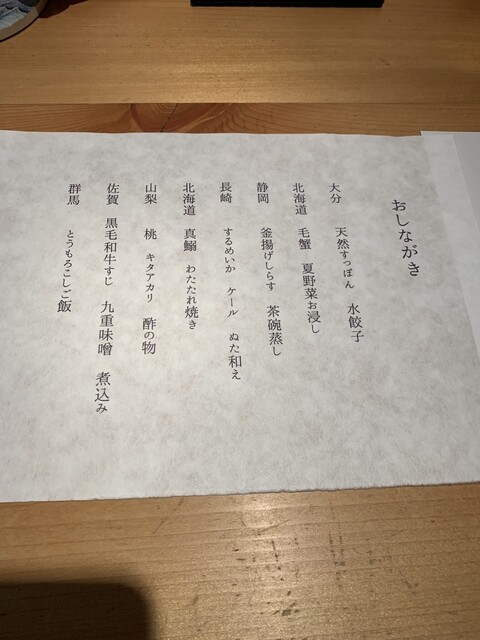 おしながき
大分 天然すっぽん 水餃子
北海道 毛蟹 夏野菜お浸し
静岡 釜揚げしらす 茶碗蒸し
長崎 するめいか ケール ぬた和え
北海道 真鰯 わたたれ焼き
山梨 桃 キタアカリ 酢の物
佐賀 黒毛和牛すじ 九重味噌 煮込み
群馬 とうもろこしご飯